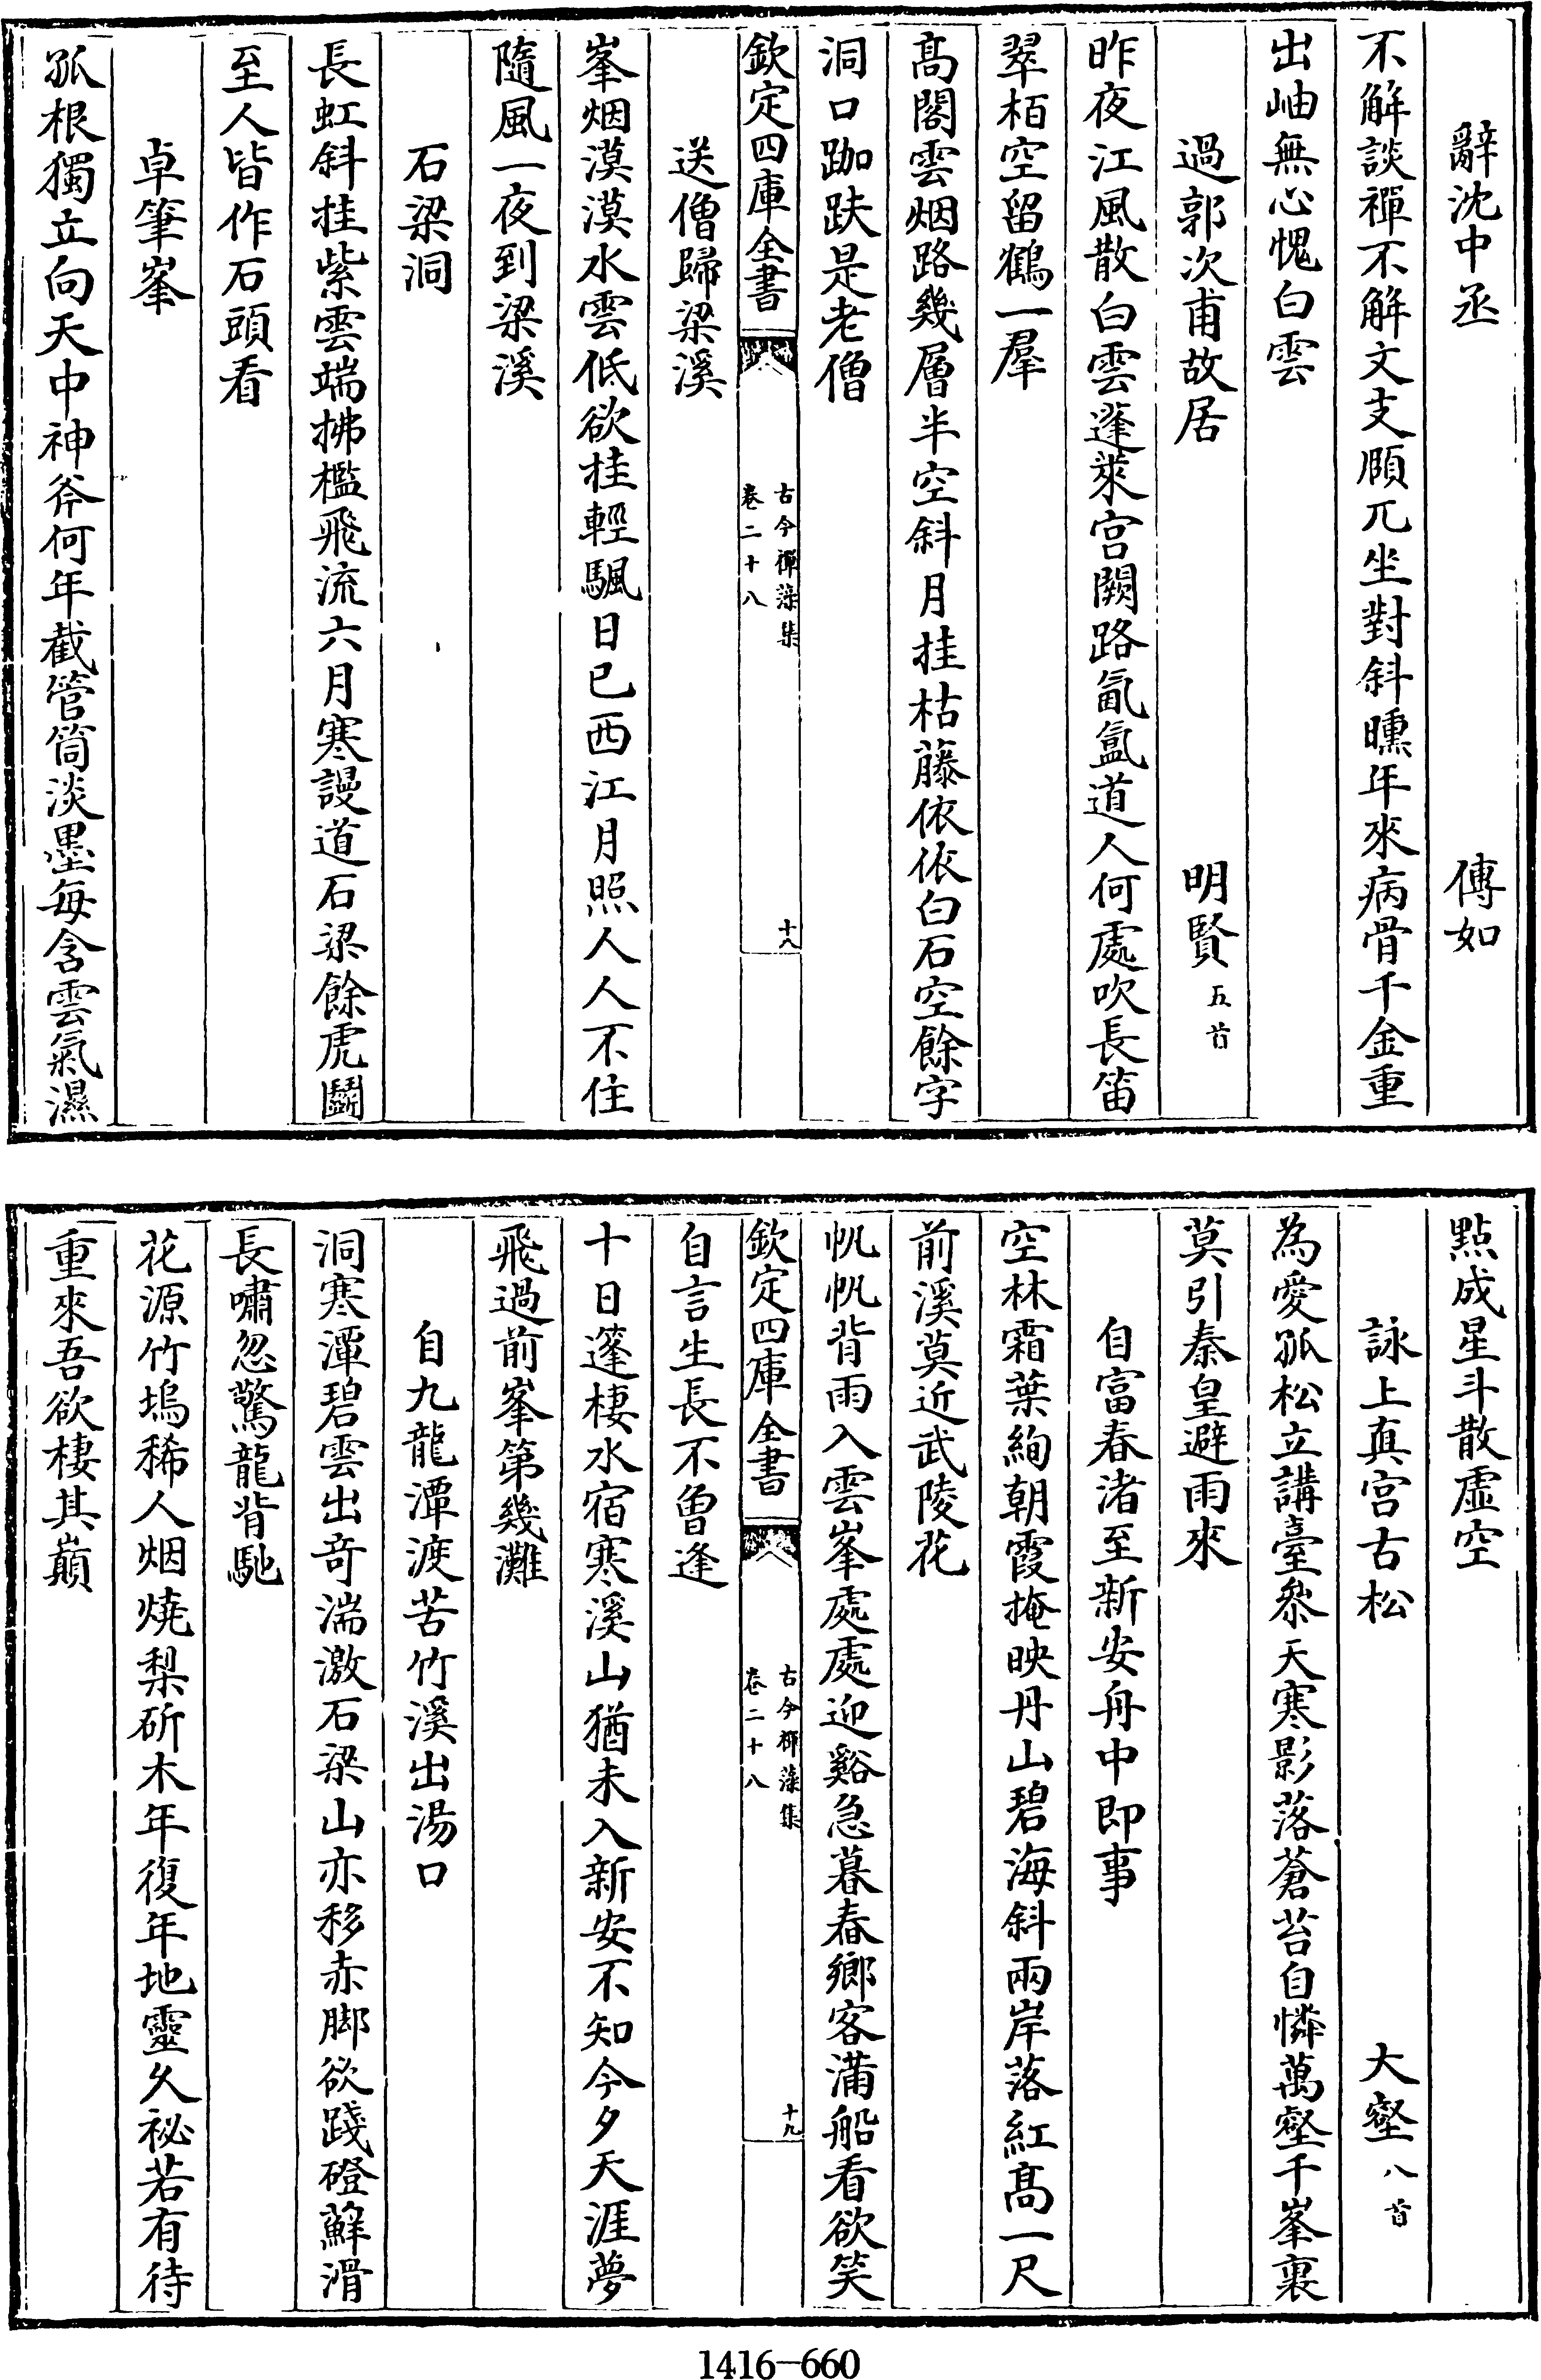 辭沈中丞　傳如
不解談禪不解文支頤兀坐對斜曛年來病骨千金重
出岫無心愧白雲
過郭次甫故居　明賢五首
昨夜江風散白雲蓬萊宫闕路氤氲道人何處吹長笛
翠栢空留鶴一羣
髙閣雲烟路幾層半空斜月挂枯藤依依白石空餘字
洞口跏趺是老僧
欽定四庫全書　古今禪藻集卷二十八　十八
送僧歸梁溪
峯烟漠漠水雲低欲挂輕颿日已西江月照人人不住
隨風一夜到梁溪
石梁洞
長虹斜挂紫雲端拂檻飛流六月寒謾道石梁餘虎鬬
至人皆作石頭看
卓筆峯
孤根獨立向天中神斧何年截管筒淡墨每含雲氣濕
點成星斗散虚空
詠上真宫古松　大壑八首
為愛孤松立講臺叅天寒影落蒼苔自憐萬壑千峯裏
莫引秦皇避雨來
自富春渚至新安舟中即事
空林霜葉絢朝霞掩映丹山碧海斜兩岸落紅髙一尺
前溪莫近武陵花
帆帆背雨入雲峯處處迎谿急暮春鄉客滿船看欲笑
欽定四庫全書　古今禪藻集卷二十八　十九
自言生長不曾逢
十日篷棲水宿寒溪山猶未入新安不知今夕天涯夢
飛過前峯第幾灘
自九龍潭渡苦竹溪出湯口
洞寒潭碧雲出奇湍激石梁山亦移赤脚欲踐磴蘚滑
長嘯忽驚龍背馳
花源竹塢稀人烟燒梨斫木年復年地靈久祕若有待
重來吾欲棲其巔
1416-660